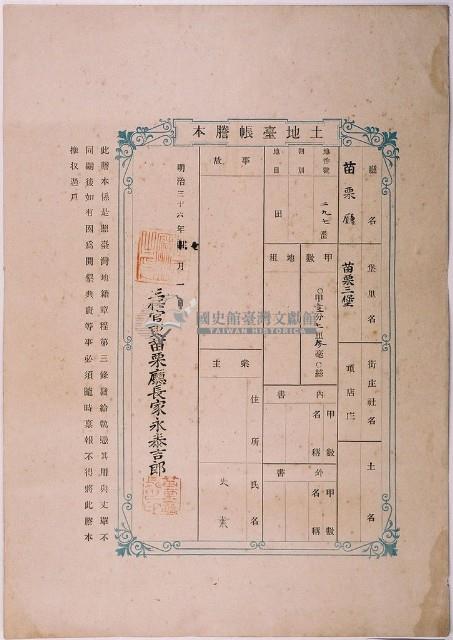 土地臺帳謄本
廳名
苗栗廳
堡里名
苗栗二堡
街庄社名
頭店庄
土名
地番號
二九七番
則別
地目
田
甲數
〇甲
地租
內書
甲數
名稱
外書
甲數
名稱
事故
業主
住所
氏名
明治三十六年 七月一
苗栗廳長家永泰吉郎
國史館臺灣文獻館
TAIWAN HISTORICA
此謄本係是照臺灣地籍章程第三條發給執憑其用與丈單不
同嗣後如有因為開墾典賣等事必須隨時稟報不得將此謄本
推收過戶